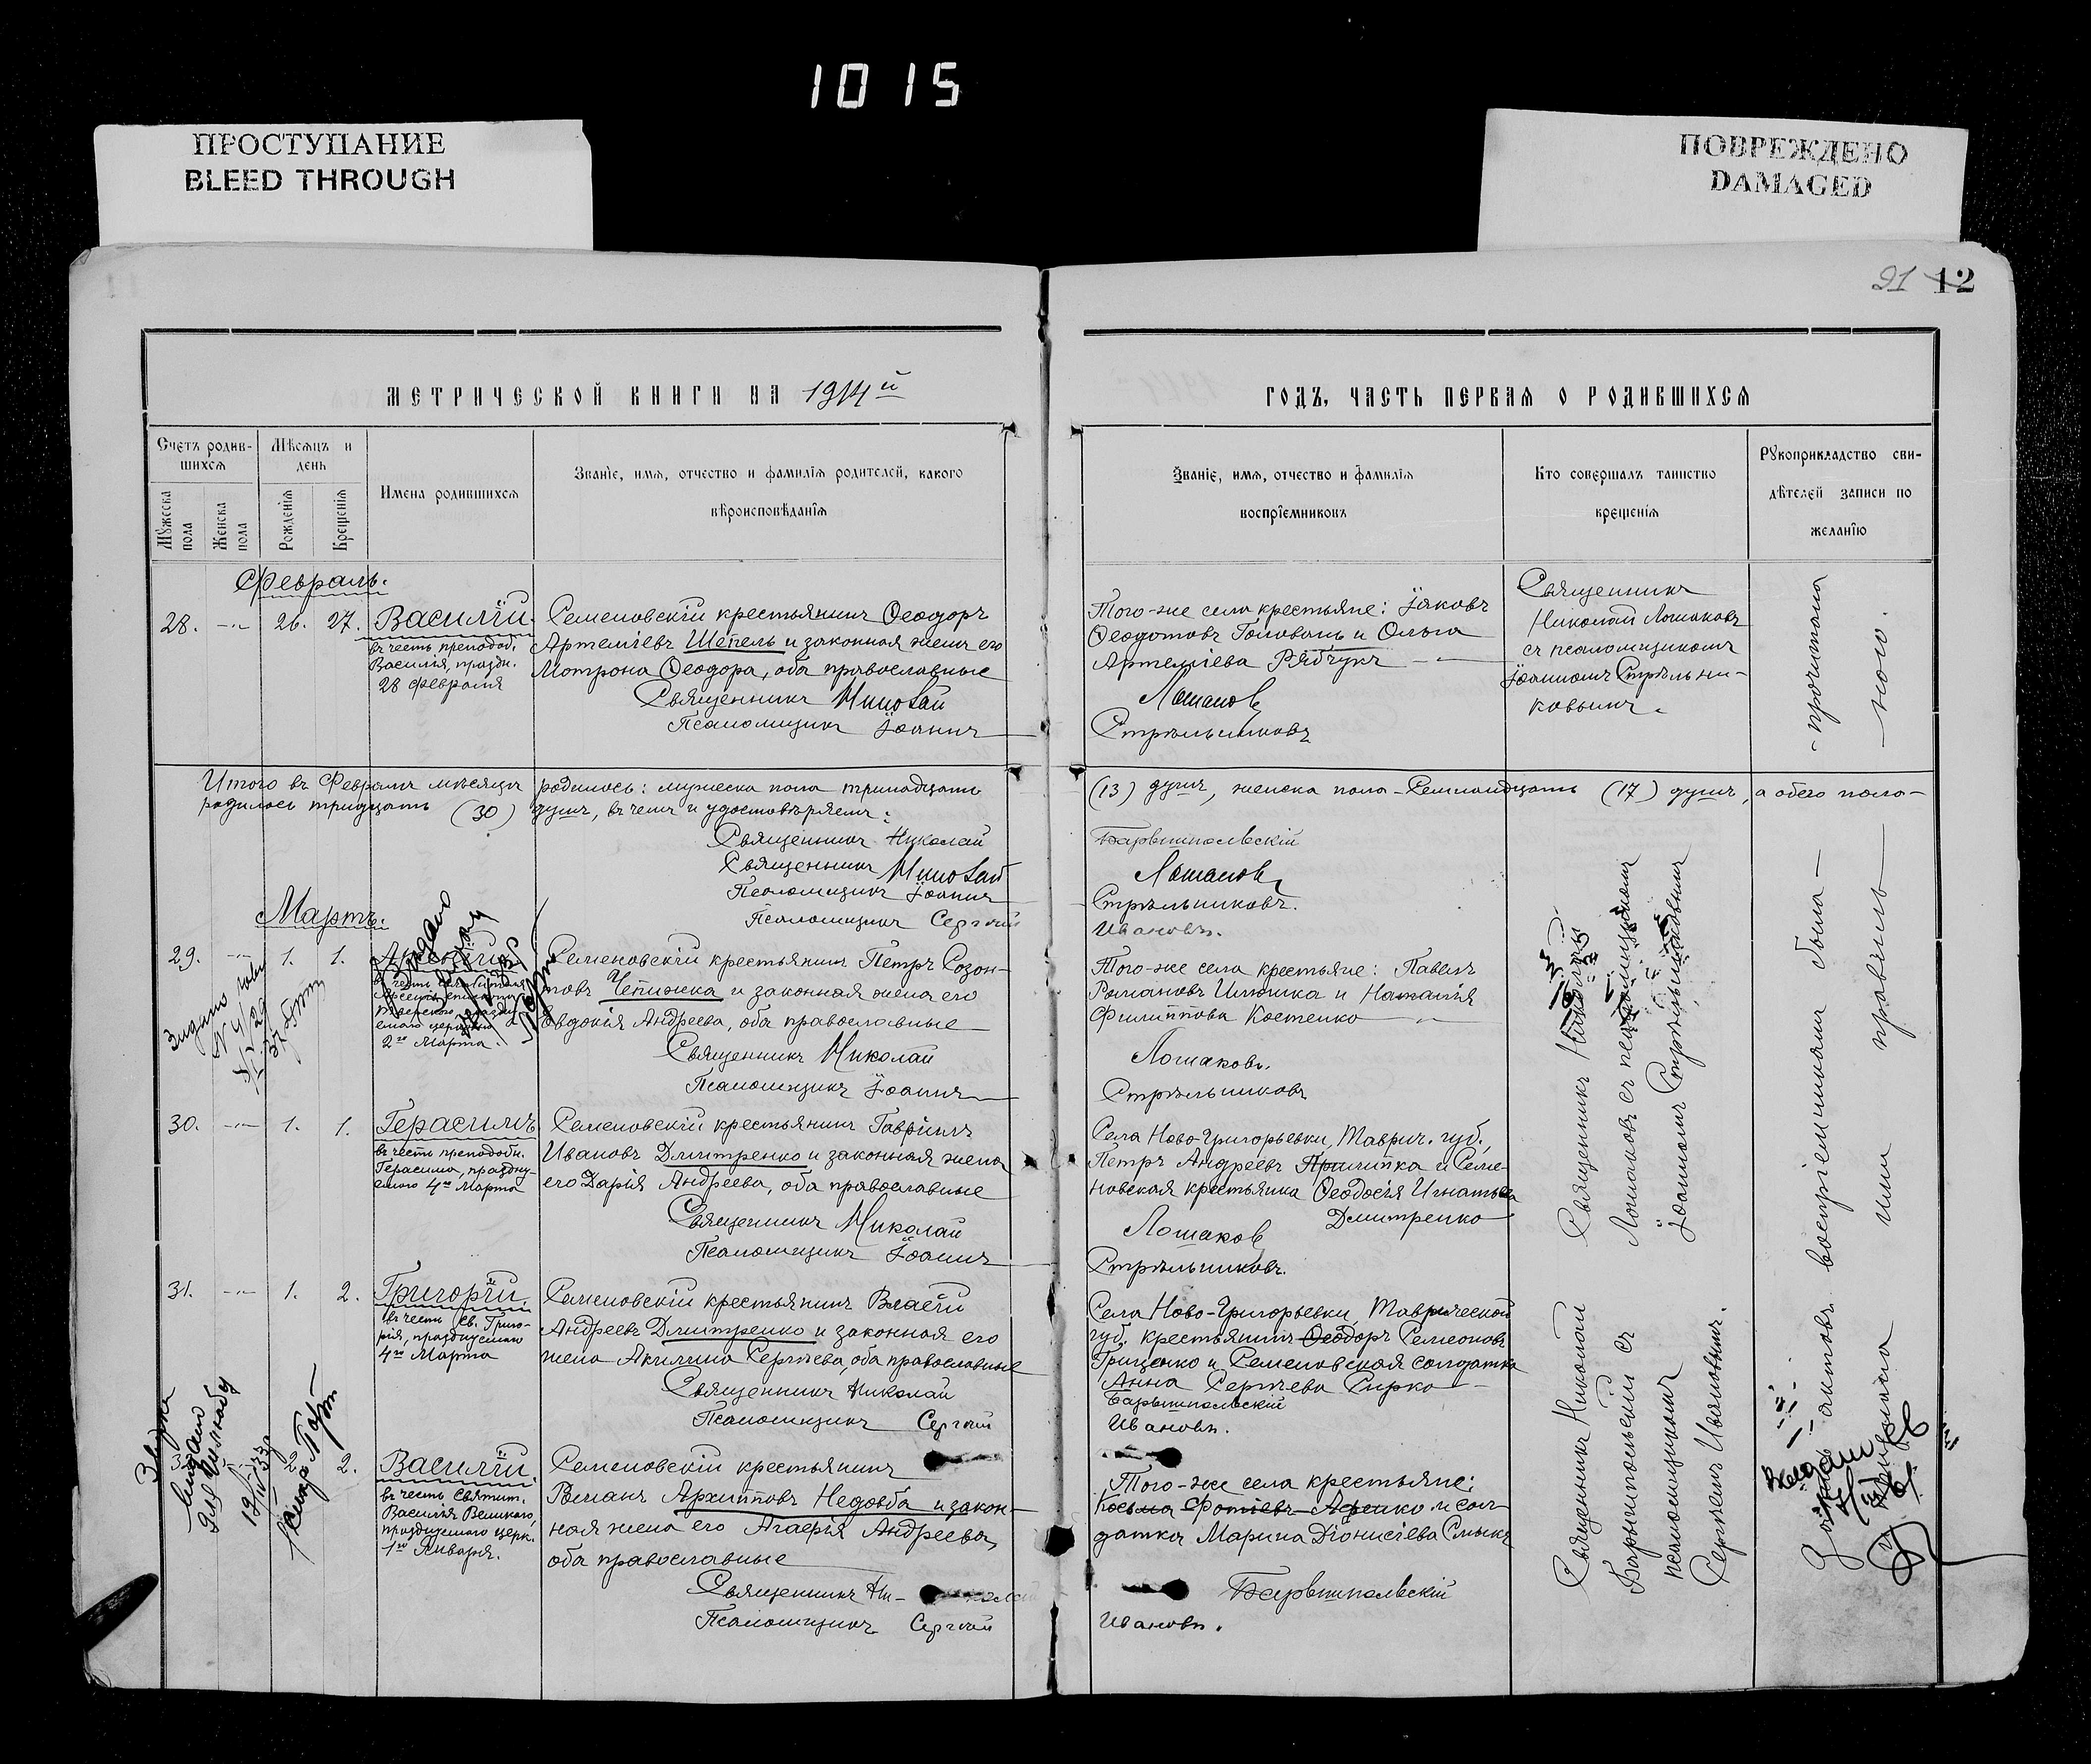 1015
ПРОСТУПАНИЕ
BLEED THROUGH
ПОВРЕЖДЕНО
DAMAGED
21 12
МЕТРИЧЕСКОЙ КНИГИ НА 1914й
Счетъ родив-
шихся
Мѣсяцъ и
день
Мужеска
пола
Женска
пола
Рожденія
Крещенія
Имена родившихся
Званіе, имя, отчество и фамилія родителей, какого
вѣроисповѣданія
Февраль.
28. -"- 26. 27. Василій.
въ честь преподоб.
Василія, праздн.
28 февраля
Семеновскій крестьянинъ Ѳеодоръ
Артеміевъ Шепель и законная жена его
Мотрона Ѳеодора, оба православные
Священникъ Николай
Псаломщикъ Іоаннъ
Итого въ Февралѣ мѣсяцѣ родилось: мужеска пола тринадцать
родилось тридцать (30) душъ, въ чемъ и удостовѣряемъ:
Священникъ Николай
Священникъ Николай
Псаломщикъ Іоаннъ
Псаломщикъ Сергій
Мартъ.
29. -"- 1. 1. Арсеній
2го Марта.
Семеновскій крестьянинъ Петръ Созон-
товъ Чепижка и законная жена его
Евдокія Андреева, оба православные
Священникъ Николай
Псаломщикъ Іоаннъ
30. -"- 1. 1. Герасимъ
въ честь преподобн.
Герасима, праздну-
емаго 4го Марта
Семеновскій крестьянинъ Гавріилъ
Ивановъ Дмитренко и законная жена
его Дарія Андреева, оба православные
Священникъ Николай
Псаломщикъ Іоаннъ
31. -"- 1. 2. Григорій.
въ честь св. Григо-
рія, празднуемаго
4го Марта
Семеновскій крестьянинъ Власій
Андреевъ Дмитренко и законная его
жена Акилина Сергѣева, оба православные
Священникъ Николай
Псаломщикъ Сергій
2. Василій.
въ честь Святит.
Василія Великаго,
празднуемаго церк.
1го Января.
Семеновскій крестьянинъ
Романъ Архиповъ Недовба и закон-
ная жена его Агафія Андреева,
оба православные
Священникъ Ни-
Псаломщикъ Сергій
ГОДЪ, ЧАСТЬ ПЕРВАЯ О РОДИВШИХСЯ
Званіе, имя, отчество и фамилія
воспріемниковъ
Кто совершалъ таинство
крещенія
Рукоприкладство сви-
дѣтелей записи по
желанію
Того-же села крестьяне: Іаковъ
Ѳеодотовъ Головань и Ольга
Артеміева Рябчукъ
Лошаковъ
Стрѣльниковъ
Священникъ
Николай Лошаковъ
съ псаломщикомъ
Іоанномъ Стрѣльни-
ковымъ.
(13) душъ, женска пола-Семнадцать (17) душъ, а обего пола-
Барышпольскій
Лошаковъ
Стрѣльниковъ.
Ивановъ.
Того-же села крестьяне: Павелъ
Романовъ Илюшка и Наталія
Филиппова Костенко
Лошаковъ.
Стрѣльниковъ
Села Ново-Григорьевки, Таврич. губ.,
Петръ Андреевъ Прилипка и Семе-
новская крестьянка Ѳеодосія Игнатьева
Дмитренко
Лошаковъ
Стрѣльниковъ.
Села Ново-Григорьевки, Таврической
губ. крестьянинъ Ѳеодоръ Семеоновъ
Грищенко и Семеновская солдатка
Анна Сергѣева Сирко
Барышпольскій
Ивановъ.
Того-же села крестьяне:
Косьма Фотіевъ и сол-
датка Марина Діонисіева Смыкъ
Барышпольскій
Ивановъ.
Священникъ Николай
Лошаковъ съ псаломщикомъ
Іоанномъ Стрѣльниковымъ
Священникъ Николай
Барышпольскій съ
псаломщикомъ
Сергѣемъ Ивановымъ.
актовъ воспріемниками была прочитана
ими правильно.